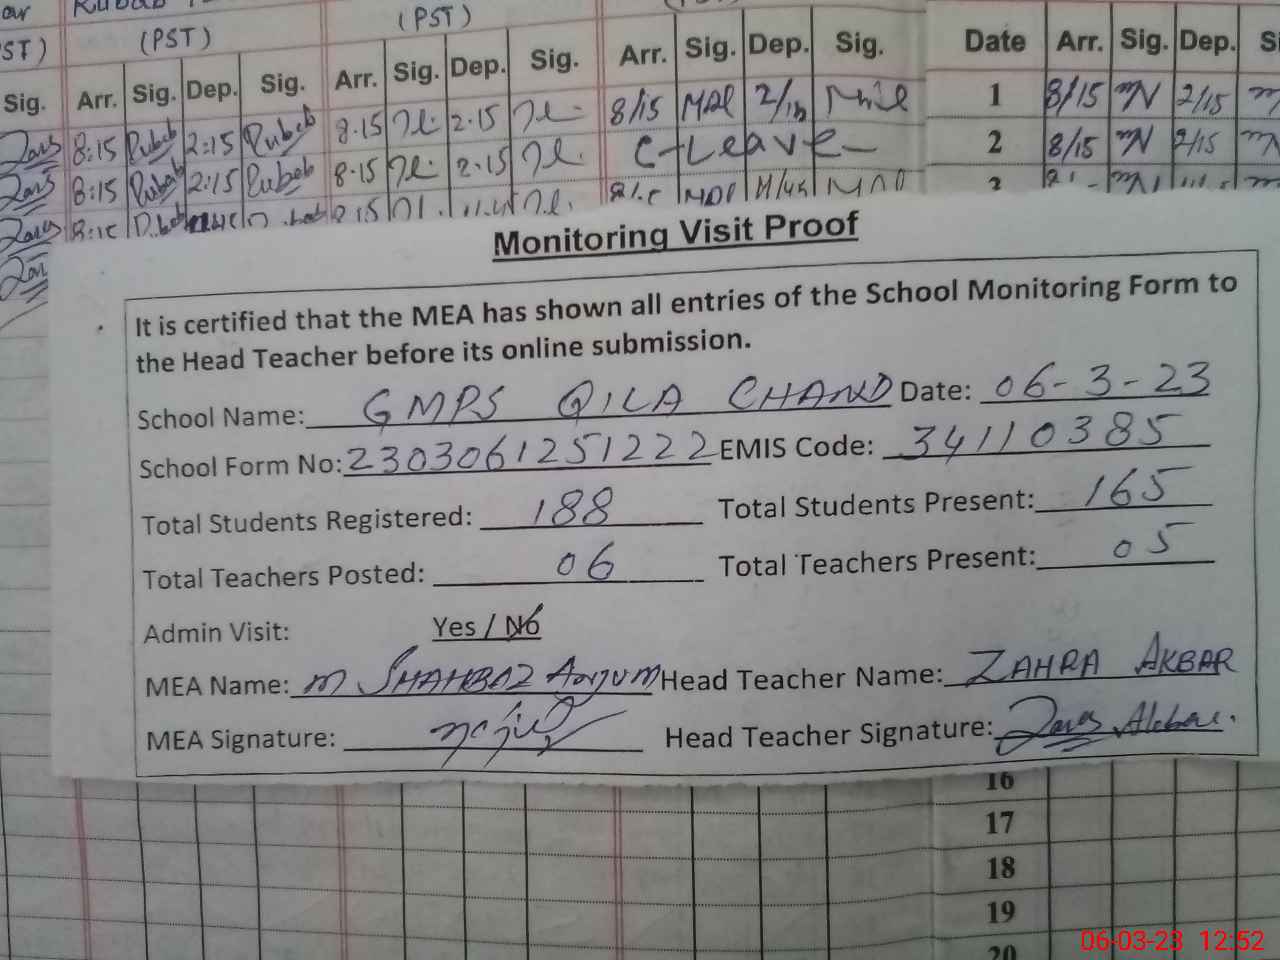 ar Rubab
(PST) (PST)
ST)
Sig. Arr. Sig. Dep. Sig. Arr. Sig. Dep. Sig. Arr. Sig. Dep. Sig. Date Arr. Sig. Dep. Si
8:15 Rubab 2:15 Rubab 8.15 2.15 8/15 2/15 1 8/15 mN 2/15
8:15 Rubab 2:15 Rubab 8.15 2.15 C-Leave- 2 8/15 mN 2/15
Monitoring Visit Proof
It is certified that the MEA has shown all entries of the School Monitoring Form to
the Head Teacher before its online submission.
School Name: GMPS QILA CHAND Date: 06-3-23
School Form No: 2303061251222 EMIS Code: 34110385
Total Students Registered: 188 Total Students Present: 165
Total Teachers Posted: 06 Total Teachers Present: 05
Admin Visit: Yes / No
MEA Name: M SHAHBAZ Anjum Head Teacher Name: ZAHRA AKBAR
MEA Signature: Head Teacher Signature: Zahra Akbar.
16
17
18
19
20
06-03-23 12:52